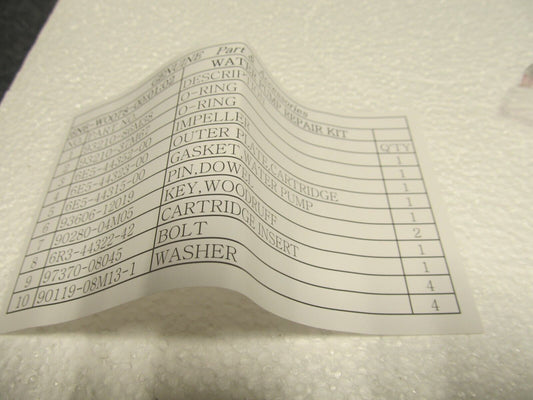 GENUINE Part & Accessories
6N6-W0078-00,01,02 WATER PUMP REPAIR KIT
NO. PART NO. DESCRIPTION Q'TY
93210-86M38 O-RING 1
93210-37M67 O-RING 1
3 6E5-44352-00 IMPELLER 1
4 6E5-44323-00 OUTER PLATE,CARTRIDGE 1
5 6E5-44315-00 GASKET,WATER PUMP 1
6 93606-12019 PIN,DOWEL 2
7 90280-04M05 KEY,WOODRUFF 1
8 6R3-44322-42 CARTRIDGE INSERT 1
9 97370-08045 BOLT 4
10 90119-08M13-1 WASHER 4